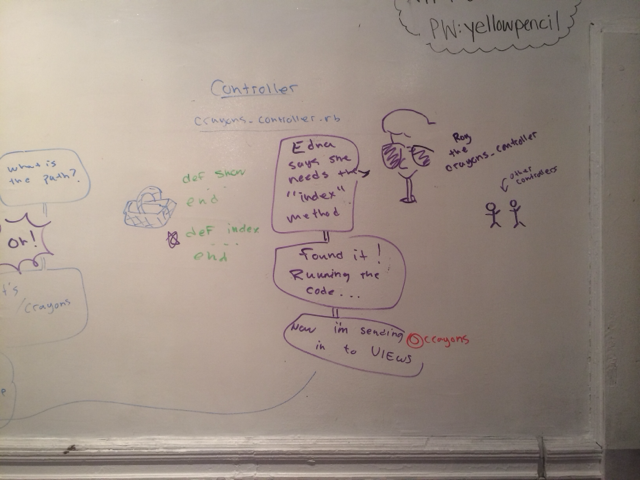 PW:yellowpencil
Controller
crayons_controller.rb
what is
the path?
oh!
t's
/crayons
def show
...
end
def index
...
end
Edna
says she
needs the
"index"
method
Found it!
Running the
code...
Now i'm sending
in to VIEWS
@crayons
Roy
the
crayons_controller
other
controllers
e